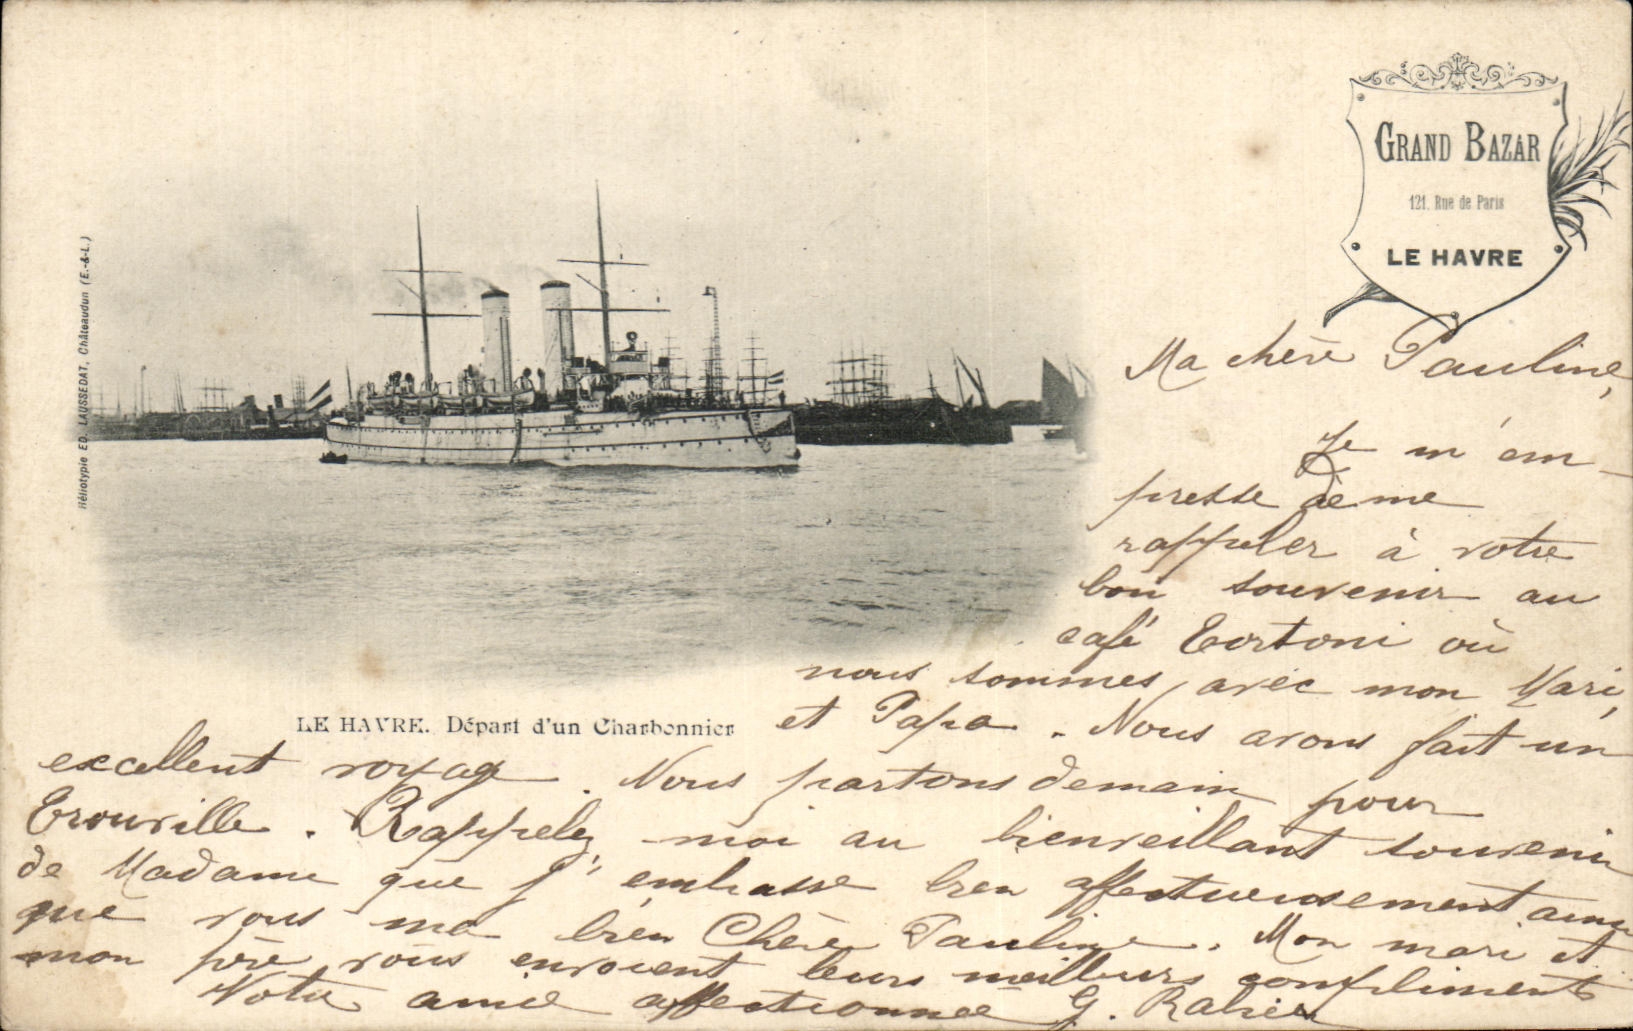 GRAND BAZAR
121, Rue de Paris
LE HAVRE
Héliotypie ED. LAUSSEDAT, Châteaudun (E.-&-L.)
LE HAVRE. Départ d'un Charbonnier
Ma chère Pauline,
Je m'em-
presse de me
rappeler à votre
bon souvenir au
café Tortoni où
nous sommes, avec mon Mari,
et Papa. Nous avons fait un
excellent voyage. Nous partons demain pour
Trouville. Rappelez moi au bienveillant souvenir
de Madame que j'embrasse bien affectueusement ainsi
que vous ma bien Chère Pauline. Mon mari et
mon père vous envoient leurs meilleurs compliments
Votre amie affectionnée G.